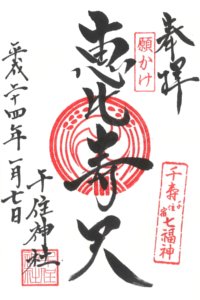 奉拝
願かけ
千寿七福神
恵比寿天
平成二十四年一月七日
千住神社